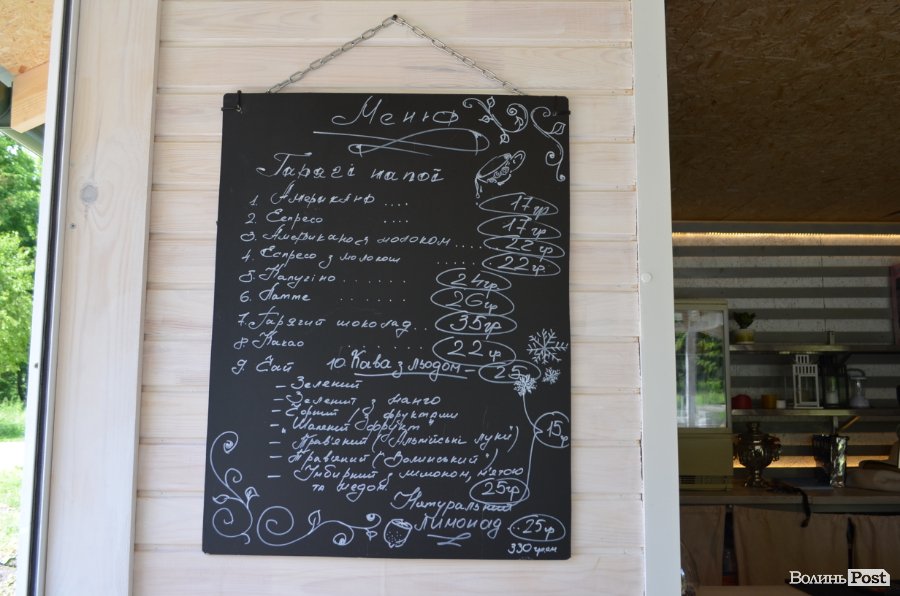 Меню
Гарячі напої
1. Американо .... 17 гр
2. Еспресо .... 17 гр
3. Американо з молоком .... 22 гр
4. Еспресо з молоком ..... 22 гр
5. Капучіно ....... 24 гр
6. Латте ....... 26 гр
7. Гарячий шоколад .. 35 гр
8. Какао ...... 22 гр
9. Чай 10. Кава з льодом – 25
– Зелений
– Зелений з манго
– Чорний / З фруктами
– "Шалений фрукт" 15 гр
– Трав'яний ("Альпійські луки")
– Трав'яний ("Волинський")
– Імбирний з лимоном, м'ятою
та медом. 25 гр
Натуральний
лимонад .. 25 гр
330 грам
ВолиньPost